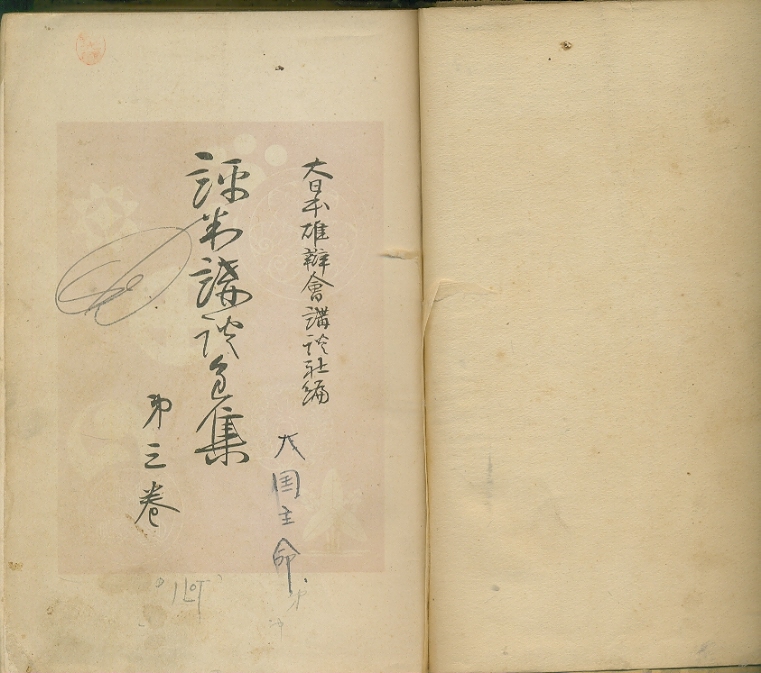 大日本雄辯會講談社編
評判講談全集
第三卷
大国主命
1LOT